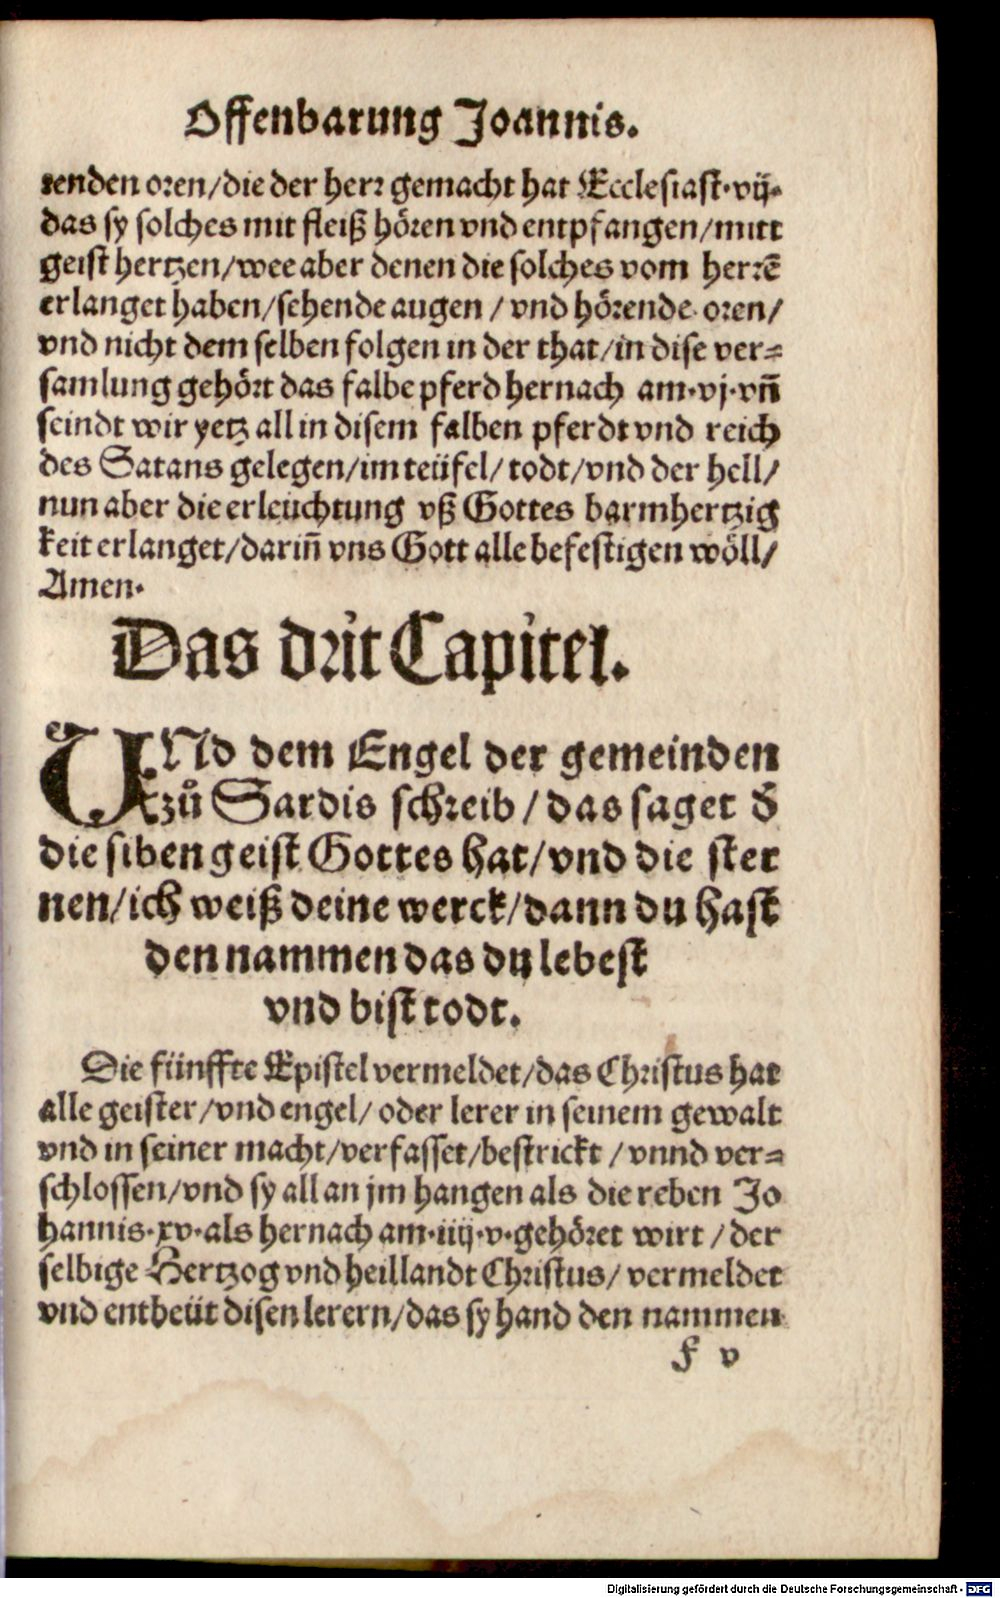 Offenbarung Joannis.
renden oren/die der herr gemacht hat Ecclesiast·vij·
das sy solches mit fleiß hören vnd entpfangen/mitt
geist hertzen/wee aber denen die solches vom herrē
erlanget haben/sehende augen / vnd hörende oren/
vnd nicht dem selben folgen in der that/in dise ver⸗
samlung gehört das falbe pferd hernach am·vj·vn̄
seindt wir yetz all in disem falben pferdt vnd reich
des Satans gelegen/im teüfel/ todt/vnd der hell/
nun aber die erleuchtung vß Gottes barmhertzig
keit erlanget/darin̄ vns Gott alle befestigen wöll/
Amen·
Das drit Capitel.
VNd dem Engel der gemeinden
zů Sardis schreib / das saget d̕
die siben geist Gottes hat/vnd die ster
nen/ich weiß deine werck/dann du hast
den nammen das du lebest
vnd bist todt.
Die fünffte Epistel vermeldet/das Christus hat
alle geister/vnd engel/ oder lerer in seinem gewalt
vnd in seiner macht/verfasset/bestrickt / vnnd ver⸗
schlossen/vnd sy all an jm hangen als die reben Jo
hannis·xv·als hernach am·iiij·v·gehöret wirt / der
selbige Hertzog vnd heillandt Christus/ vermeldet
vnd entbeüt disen lerern/das sy hand den nammen
F v
Digitalisierung gefördert durch die Deutsche Forschungsgemeinschaft - DFG